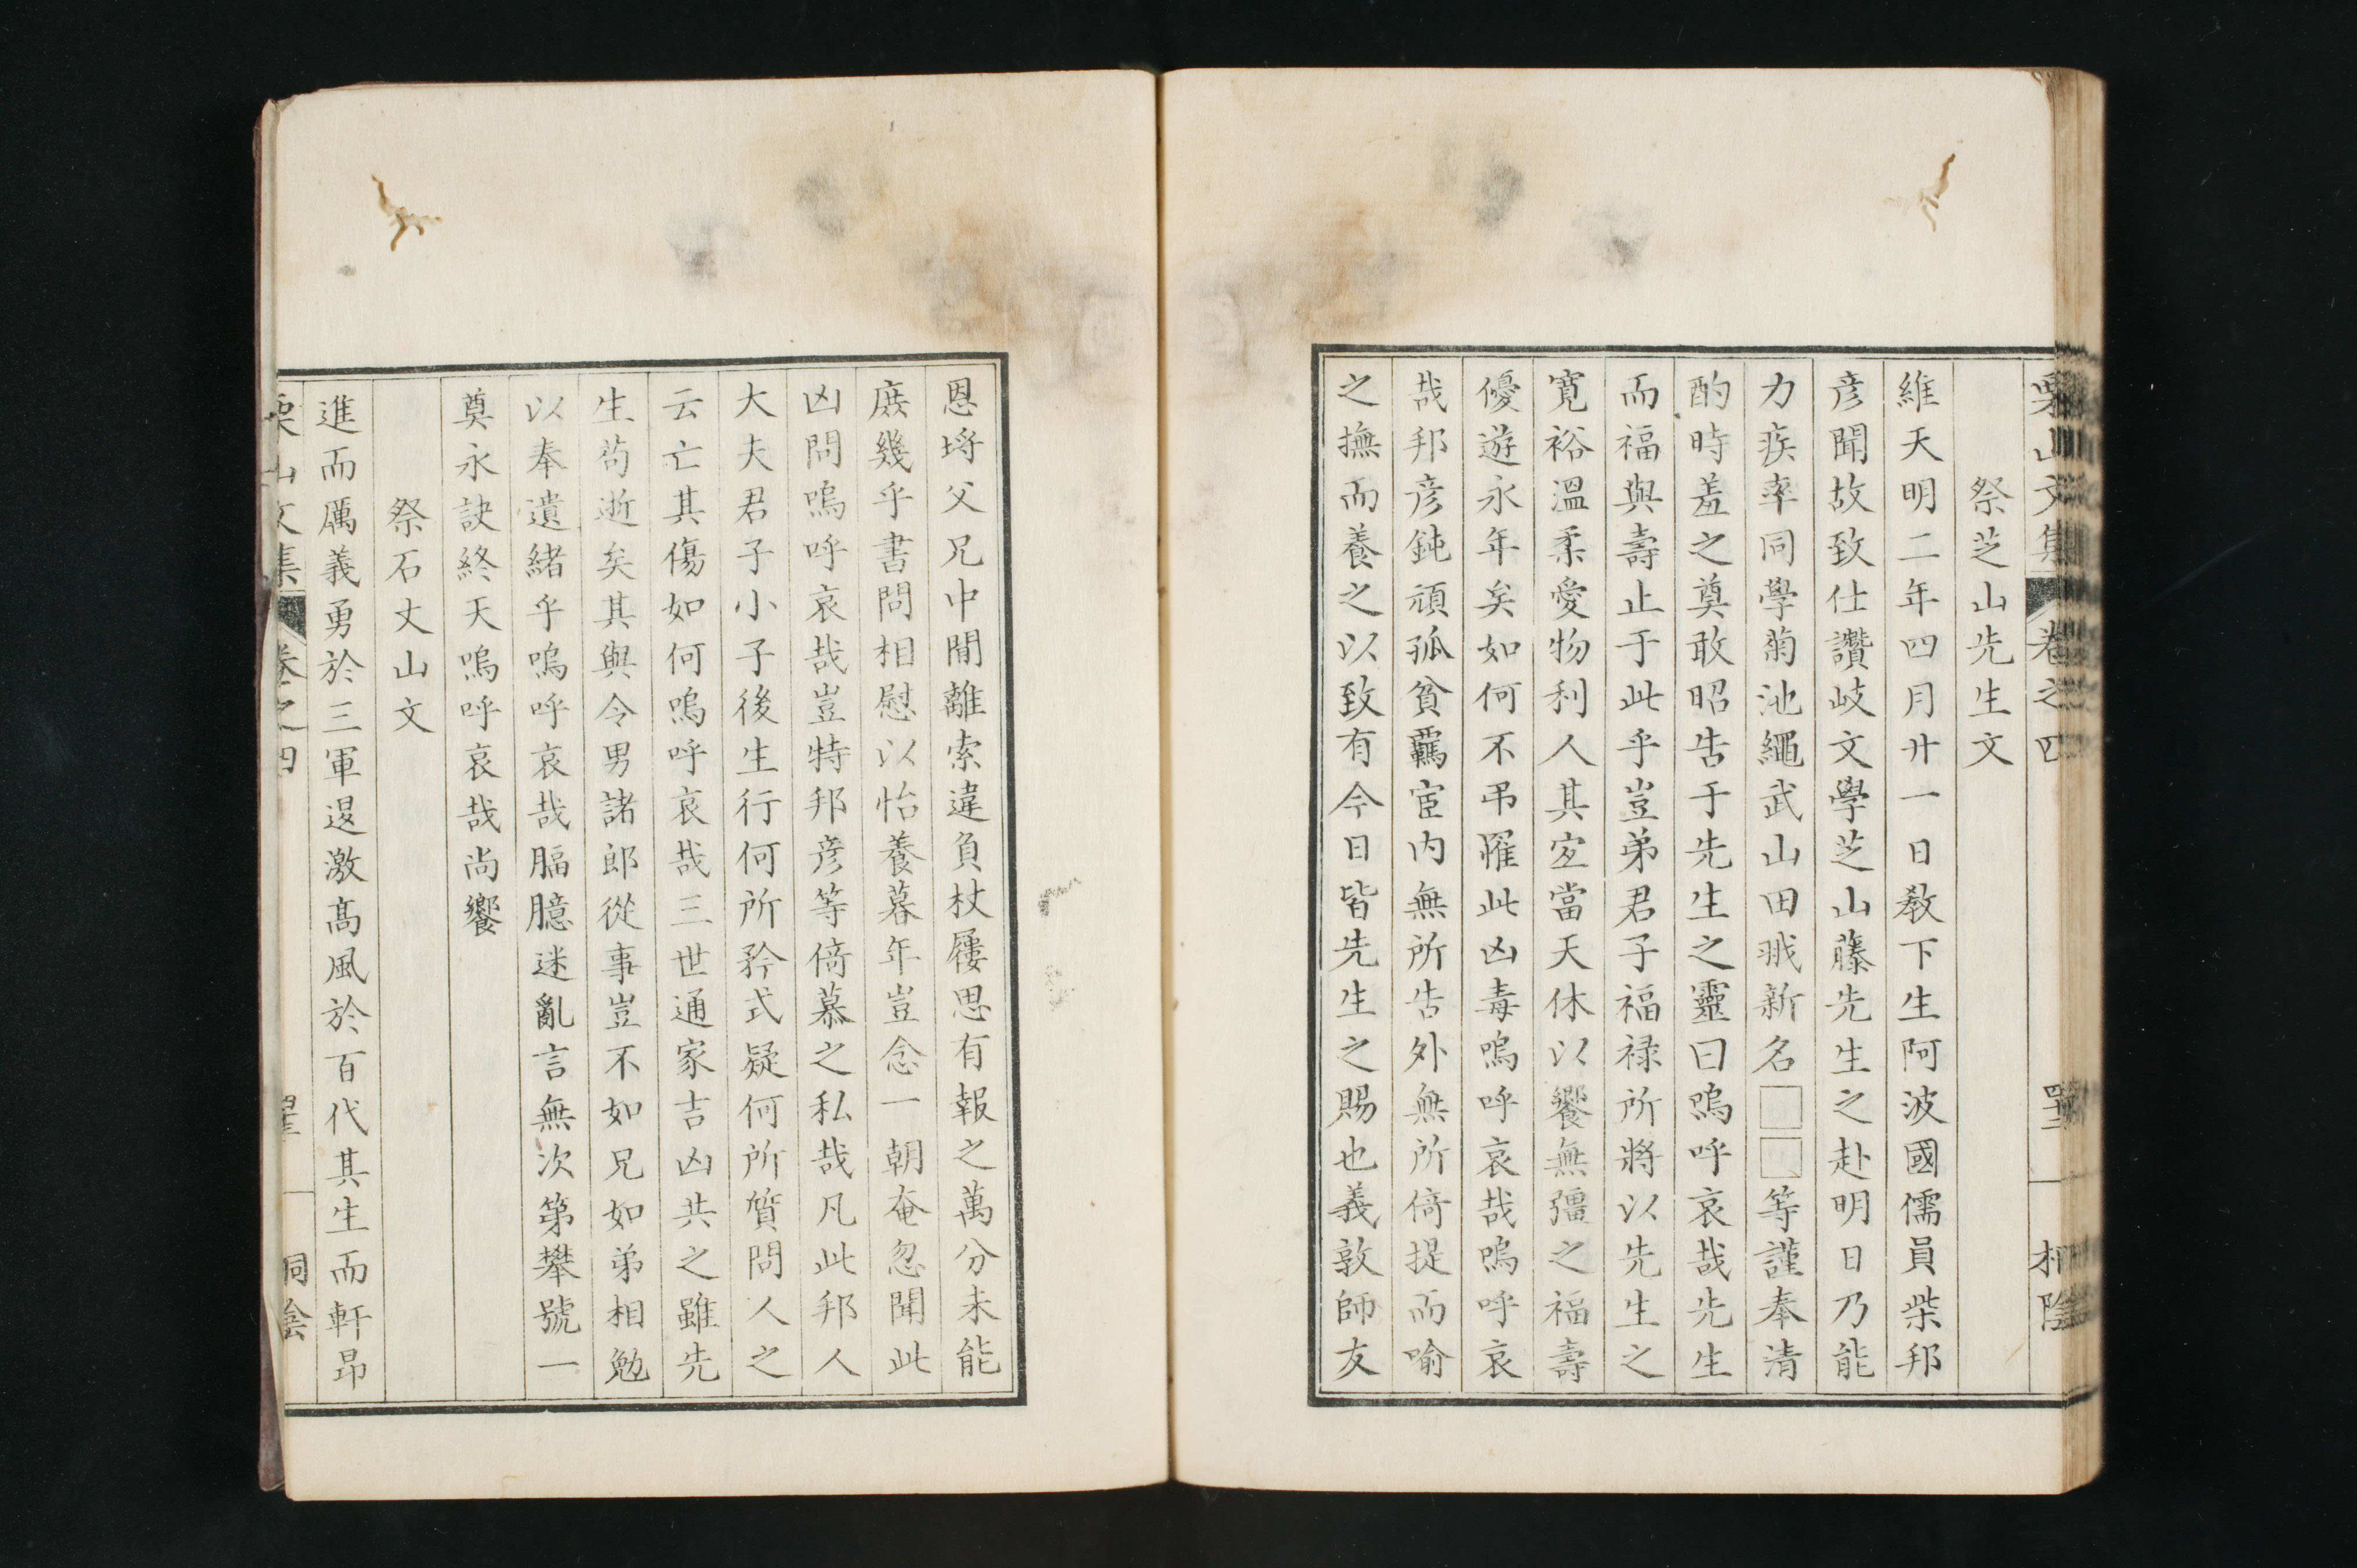 栗山文集 卷之四 四十二 桐陰
祭芝山先生文
維天明二年四月廿一日教下生阿波國儒員柴邦
彦聞故致仕讚岐文學芝山藤先生之赴明日乃能
力疾率同學菊池繩武山田戩新名□□等謹奉清
酌時羞之奠敢昭告于先生之靈曰嗚呼哀哉先生
而福與壽止于此乎豈弟君子福禄所將以先生之
寬裕溫柔愛物利人其宐當天休以饗無彊之福壽
優遊永年矣如何不弔罹此凶毒嗚呼哀哉嗚呼哀
哉邦彦鈍頑孤貧羈宦内無所告外無所倚提而喻
之撫而養之以致有今日皆先生之賜也義敦師友
恩埒父兄中閒離索違負杖屨思有報之萬分未能
庶幾乎書問相慰以怡養暮年豈念一朝奄忽聞此
凶問嗚呼哀哉豈特邦彦等倚慕之私哉凡此邦人
大夫君子小子後生行何所矜式疑何所質問人之
云亡其傷如何嗚呼哀哉三世通家吉凶共之雖先
生苟逝矣其與令男諸郎從事豈不如兄如弟相勉
以奉遺緒乎嗚呼哀哉腷臆迷亂言無次第攀號一
奠永訣終天嗚呼哀哉尚饗
祭石丈山文
進而厲義勇於三軍退激高風於百代其生而軒昂
栗山文集 卷之四 桐陰